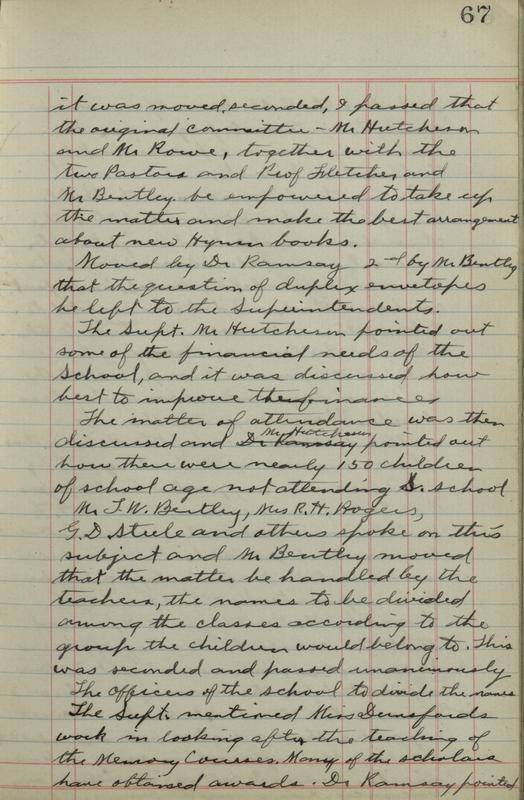 67
it was moved, seconded, & passed that
the original committee - Mr Hutcheson
and Mr Rowe, together with the
two Pastors and Prof Fletcher and
Mr Bentley be empowered to take up
the matter and make the best arrangement
about new Hymn books.
Moved by Dr Ramsay 2nd by Mr Bentley
that the question of duplex envelopes
be left to the Superintendents.
The Supt. Mr Hutcheson pointed out
some of the financial needs of the
School, and it was discussed how
best to improve the finances
The matter of attendance was then
Mr Hutcheson
discussed and Dr Ramsay pointed out
how there were nearly 150 children
of school age not attending S. school
Mr T. W. Bentley, Mrs R. H. Rogers,
G. D. Steele and others spoke on this
subject and Mr Bentley moved
that the matter be handled by the
teachers, the names to be divided
among the classes according to the
group the children would belong to. This
was seconded and passed unanimously
The officers of the school to divide the names
The Supt. mentioned Miss Dunsfords
work in looking after the teaching of
the Memory Courses. Many of the scholars
have obtained awards. Dr Ramsay pointed